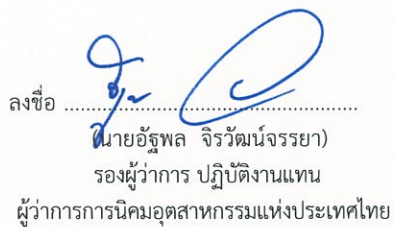 ลงชื่อ ........................................................
(นายอัฐพล จิรวัฒน์จรรยา)
รองผู้ว่าการ ปฏิบัติงานแทน
ผู้ว่าการการนิคมอุตสาหกรรมแห่งประเทศไทย